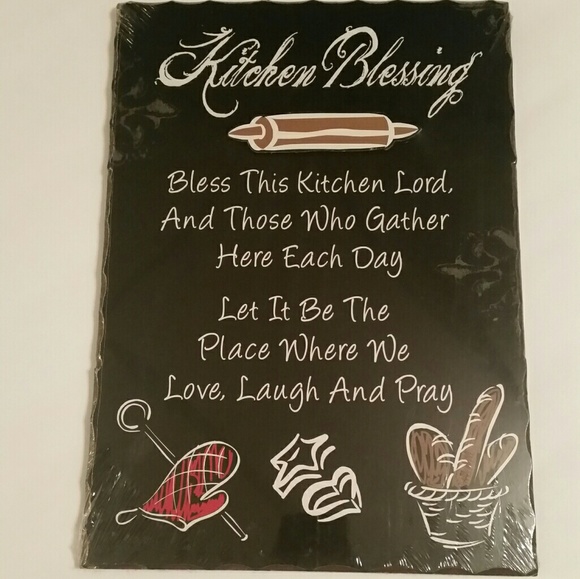 Kitchen Blessing
Bless This Kitchen Lord,
And Those Who Gather
Here Each Day
Let It Be The
Place Where We
Love, Laugh And Pray